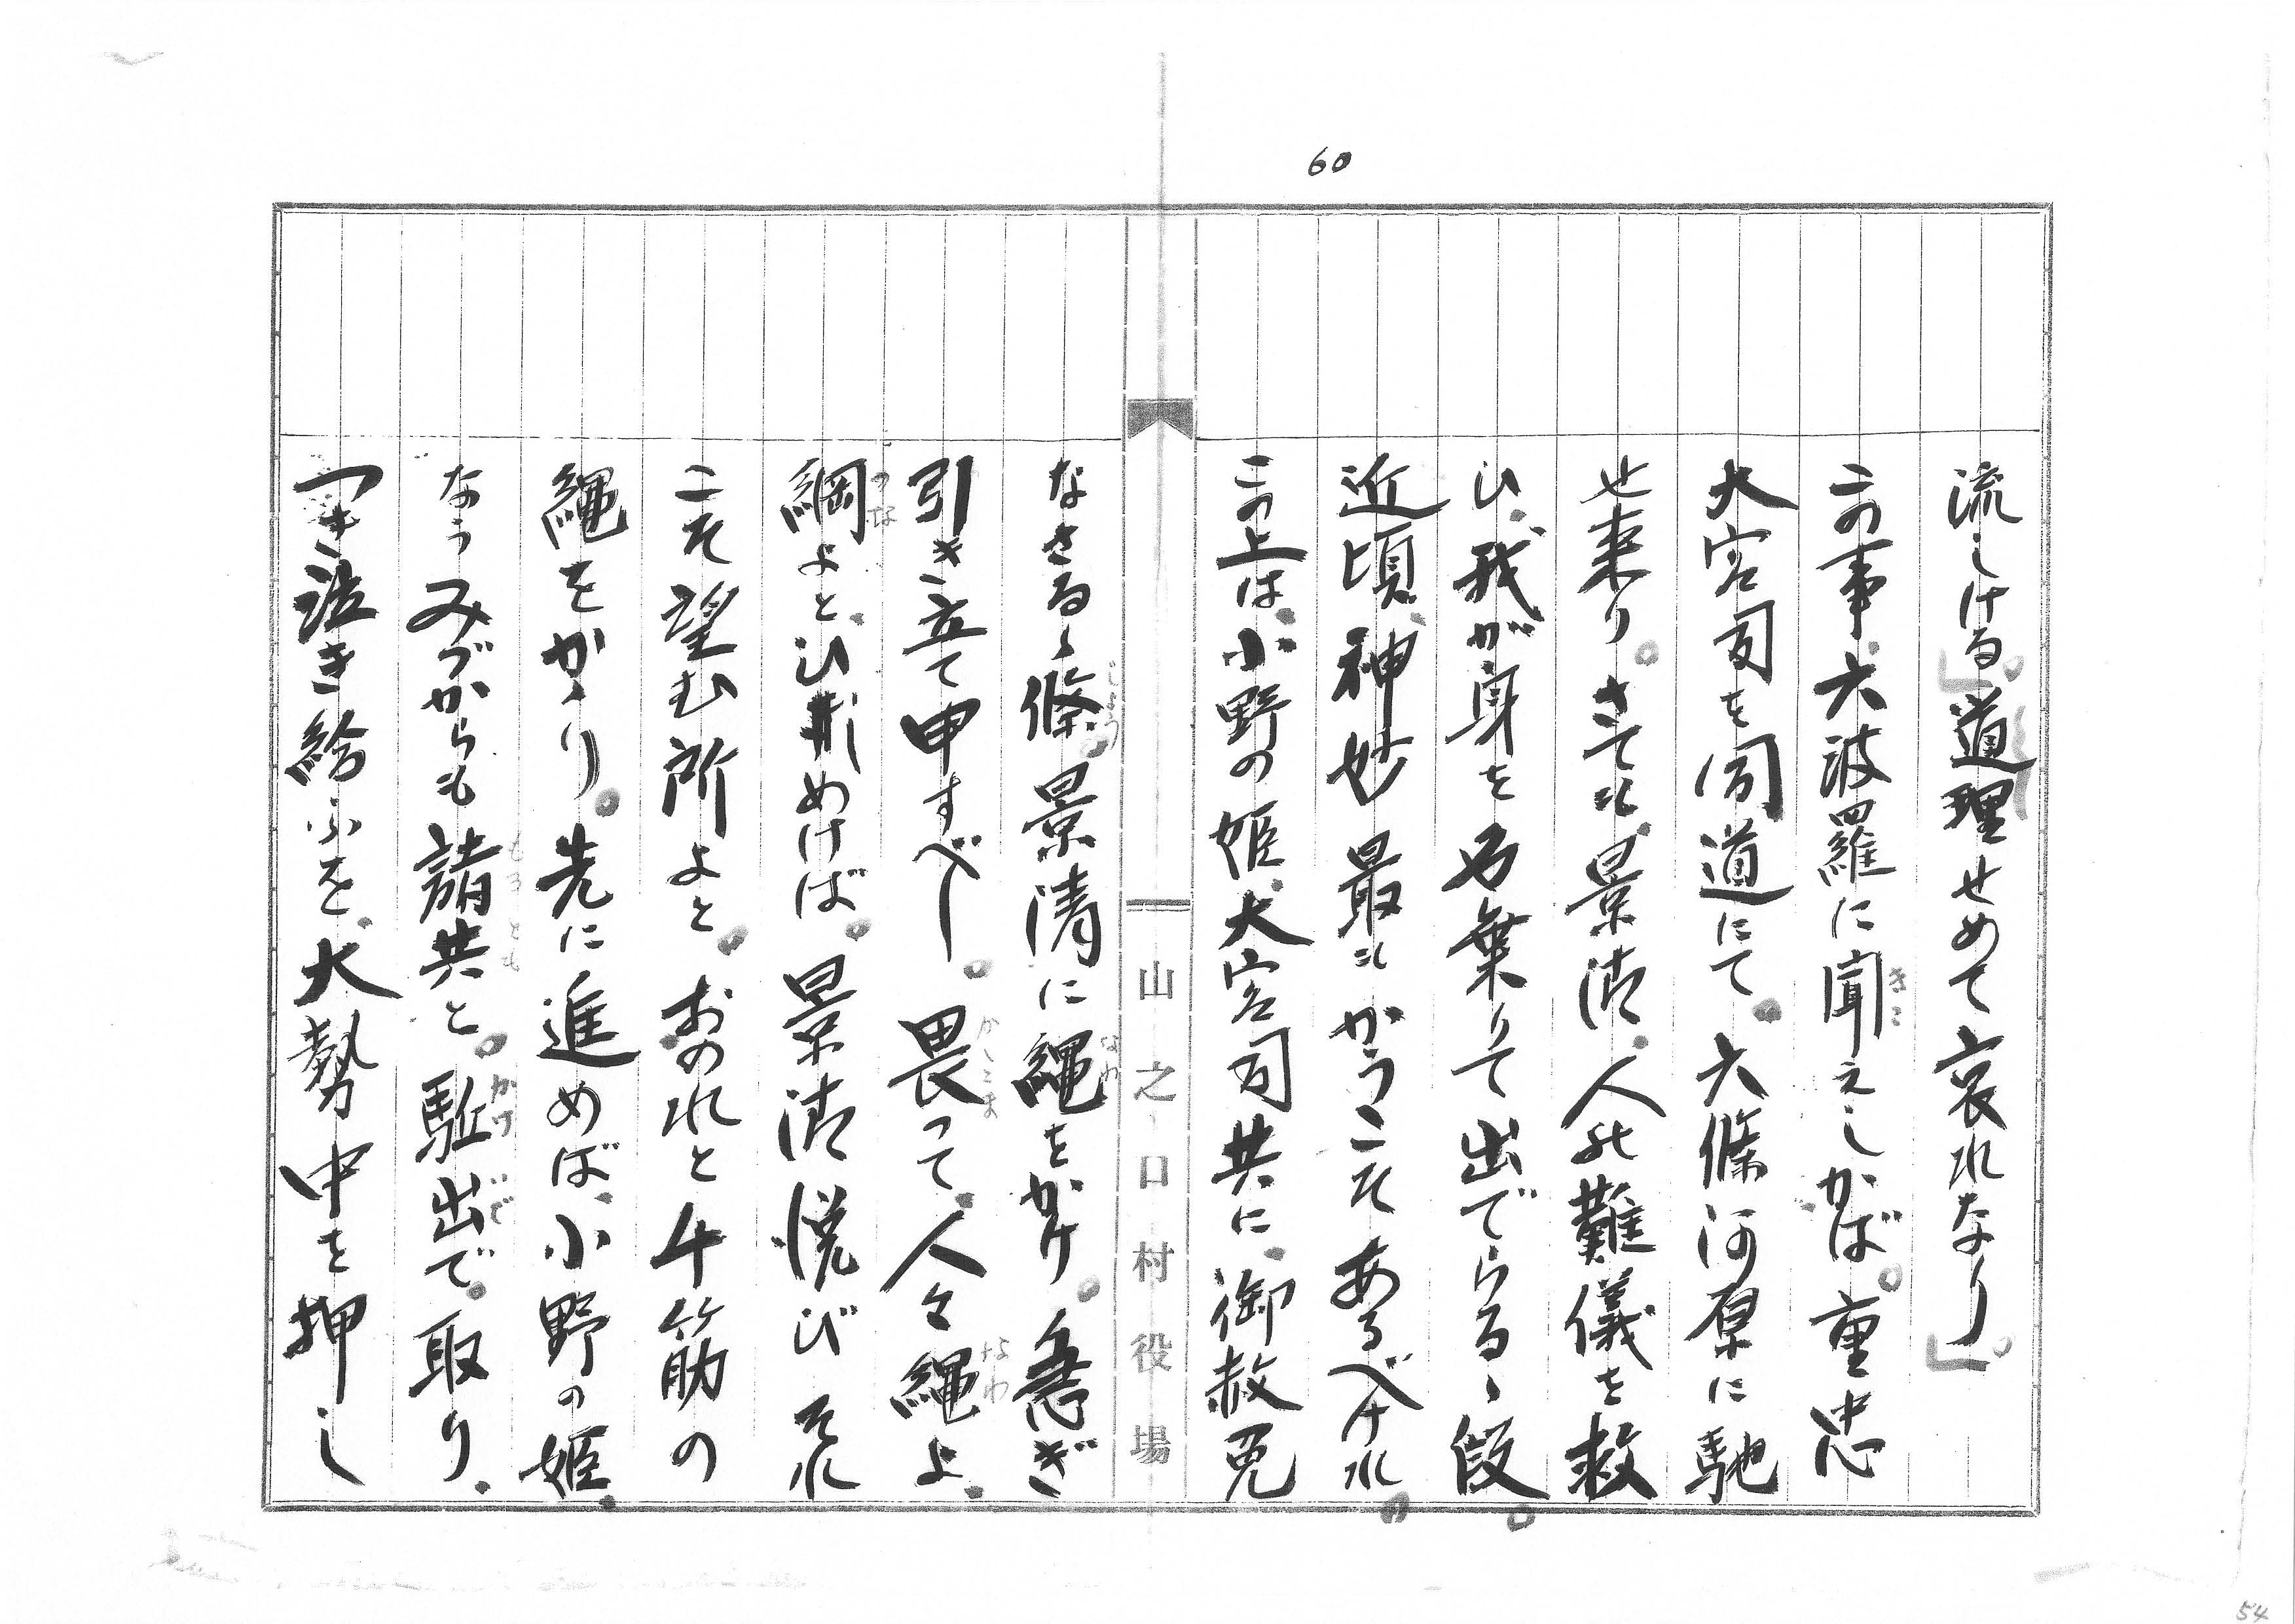 60
流しける。道理せめて哀れなり。
この事、六波羅に聞えしかば。重忠
大宮司を同道にて。六條河原に馳
せ来り。さても、景清、人の難儀を救
ひ、我が身を名乗りて出でらるゝ段。
近頃、神妙 最も かうこそあるべけれ。
この上は、小野の姫、大宮司共に、御赦免
なさるゝ條。景清に縄をかけ。急ぎ
引き立て申すべし。畏って、人々縄よ、
綱よとひしめけば。景清悦び それ
こそ望む所よと。おのれと千筋の
縄をかゝり。先に進めば、小野の姫、
なうみづからも諸共と。駈出で、取り、
つき泣き給ふを、大勢中を押し
じょう
なわ
かしこま
なわ
つな
もろとも
かけいで
きこ
山之口村役場
54